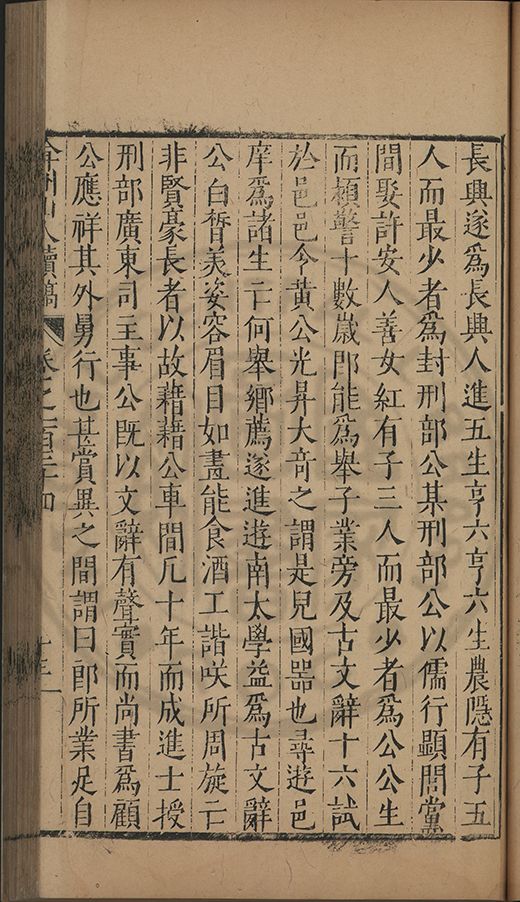 長興遂爲長興人進五生亨六亨六生農隱有子五
人而最少者爲封刑部公某刑部公以儒行顯閭黨
間娶許安人善女紅有子三人而最少者爲公公生
而穎警十數嵗卽能爲舉子業旁及古文辭十六試
於邑邑令黃公光昇大奇之謂是兒國器也尋遊邑
庠爲諸生亡何舉鄉薦遂進遊南太學益爲古文辭
公白晳美姿容眉目如畫能食酒工諧咲所周旋亡
非賢豪長者以故藉藉公車間凡十年而成進士授
刑部廣東司主事公旣以文辭有聲實而尚書爲顧
公應祥其外舅行也甚賞異之間謂曰郎所業足自
弇州山人續稿 卷之一百三十四